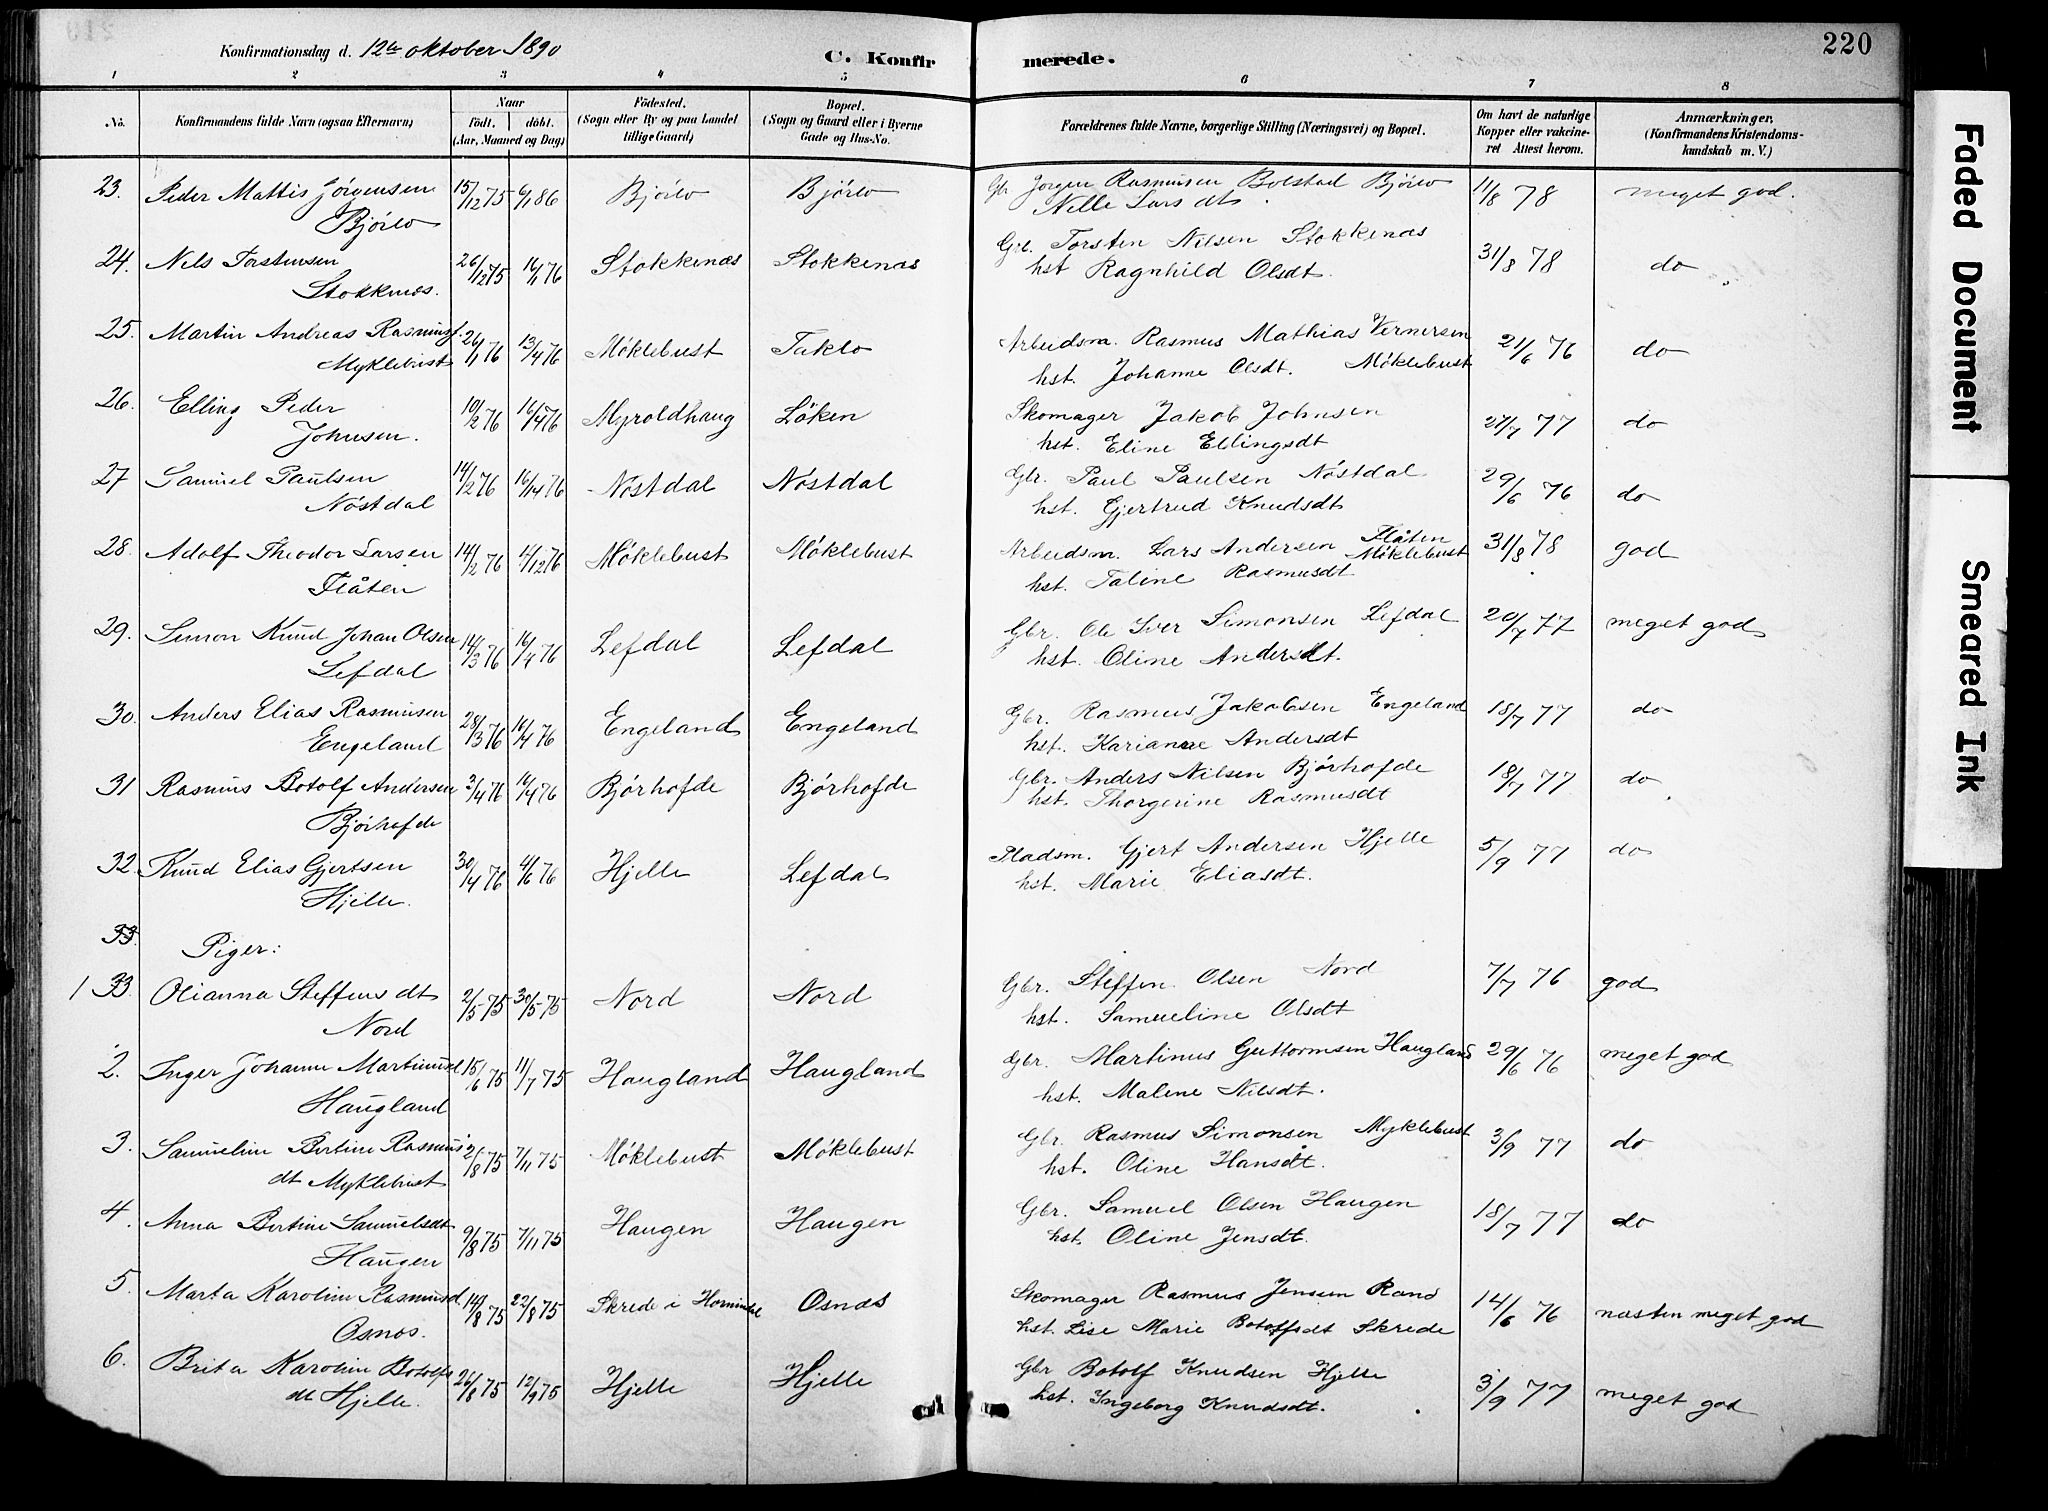 Konfirmationsdag d. 12te oktober 1890
C. Konfirmerede.
220
1 2 3 4 5 6 7 8
No.
Konfirmandens fulde Navn (ogsaa Efternavn)
Naar
födt. döbt.
(Aar, Maaned og Dag)
Födested.
(Sogn eller By og paa Landet
tillige Gaard)
Bopæl.
(Sogn og Gaard eller i Byerne
Gade og Hus-No.
Forældrenes fulde Navne, borgerlige Stilling (Næringsvei) og Bopæl.
Om havt de naturlige
Kopper eller vakcine-
ret Attest herom.
Anmærkninger,
(Konfirmandens Kristendoms-
kundskab m. V.)
23. Peder Mattis Jörgensen 15/12 75 6/1 86 Bjørlo Bjørlo Gb. Jørgen Rasmusen Bolstad Bjørlo 11/8 78 meget god.
Bjørlo Nille Larsdt.
24. Nils Torstensen 26/12 75 16/1 76 Stokkenæs Stokkenæs Gbr. Torsten Nilsen Stokkenæs 31/8 78 do
Stokkenæs. hst Ragnhild Olsdt.
25. Martin Andreas Rasmuss. 26/1 76 13/4 76 Møklebust Taklo Arbeidsm. Rasmus Mathias Vernersen 21/6 76 do
Myklebust hst. Johanne Olsdt. Møklebust
26. Elling Peder 10/2 76 16/4 76 Myroldhaug Löken Skomager Jakob Johnsen 27/7 77 do
Johnsen. hst. Eline Ellingsdt
27 Samuel Paulsen 14/2 76 16/4 76 Nöstdal Nöstdal Gbr. Paul Paulsen Nöstdal 29/6 76 do
Nöstdal hst. Gjertrud Knudsdt
28. Adolf Theodor Larsen 14/2 76 14/12 76 Møklebust Møklebust Arbeidsm. Lars Andersen Flåten Møklebust 31/8 78 god
Flåten hst. Taline Rasmusdt
29. Simon Knud Johan Olsen 14/3 76 16/4 76 Lefdal Lefdal Gbr. Ole Iver Simonsen Lefdal 20/7 77 meget god
Lefdal hst. Oline Andersdt.
30. Anders Elias Rasmusen 28/3 76 16/4 76 Engeland Engeland Gbr. Rasmus Jakobsen Engeland 18/7 77 do
Engeland hst. Karianne Andersdt
31 Rasmus Botolf Andersen 2/4 76 16/4 76 Bjørhofde Bjørhofde Gbr. Anders Nilsen Bjørhofde 18/7 77 do
Bjørhofde hst. Thorgerine Rasmusdt
32. Knud Elias Gjertsen 30/4 76 4/6 76 Hjelle Lefdal Pladsm. Gjert Andersen Hjelle 5/9 77 do
Hjelle. hst. Marie Eliasdt.
33.
Piger:
1 33. Olianna Steffensdt 2/5 75 30/5 75 Nord Nord Gbr. Steffen Olsen Nord 7/7 76 god
Nord hst. Samueline Olsdt
2. Inger Johanne Martinusd 15/6 75 11/7 75 Haugland Haugland Gbr. Martinus Guttormsen Haugland 29/6 76 meget god
Haugland hst. Malene Nilsdt.
3. Samueline Bertine Rasmus 2/8 75 7/11 75 Møklebust Møklebust Gbr. Rasmus Simonsen Myklebust 3/9 77 do
dt Myklebust hst. Oline Hansdt.
4. Anna Bertine Samuelsdt 9/8 75 7/11 75 Haugen Haugen Gbr. Samuel Olsen Haugen 18/7 77 do
Haugen hst. Oline Jensdt.
5. Marta Karoline Rasmusd. 14/8 75 22/8 75 Skrede i Hornindal Osnæs Skomager Rasmus Jensen Rand 14/6 76 næsten meget god
Osnæs. hst. Lise Marie Botolfsdt Skrede
6. Brita Karoline Botolfs 26/8 75 12/9 75 Hjelle Hjelle Gbr Botolf Knudsen Hjelle 3/9 77 meget god
dt Hjelle. hst. Ingeborg Knudsdt.
Faded Document
Smeared Ink